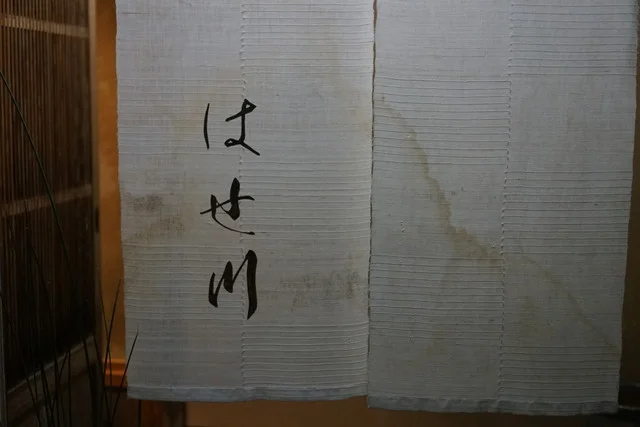 はせ川